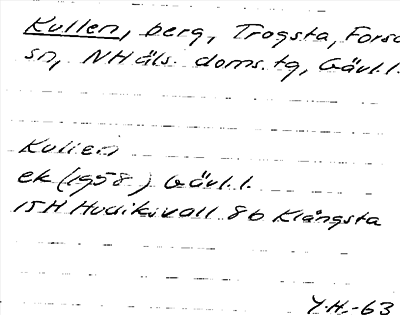 Kullen, berg, Trogsta, Forsa
sn, NHäls. doms.tg, Gävl.l.
Kullen
ek (1958) Gävl.l.
15H Hudiksvall 8b Klångsta
Y.H.-63